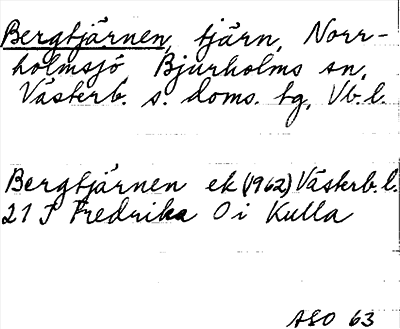 Bergtjärnen, tjärn, Norr-
holmsjö, Bjurholms sn,
Västerb. s. doms. tg, Vb. l.
Bergtjärnen ek (1962) Västerb. l.
21 J Fredrika O i Kulla
ASO 63